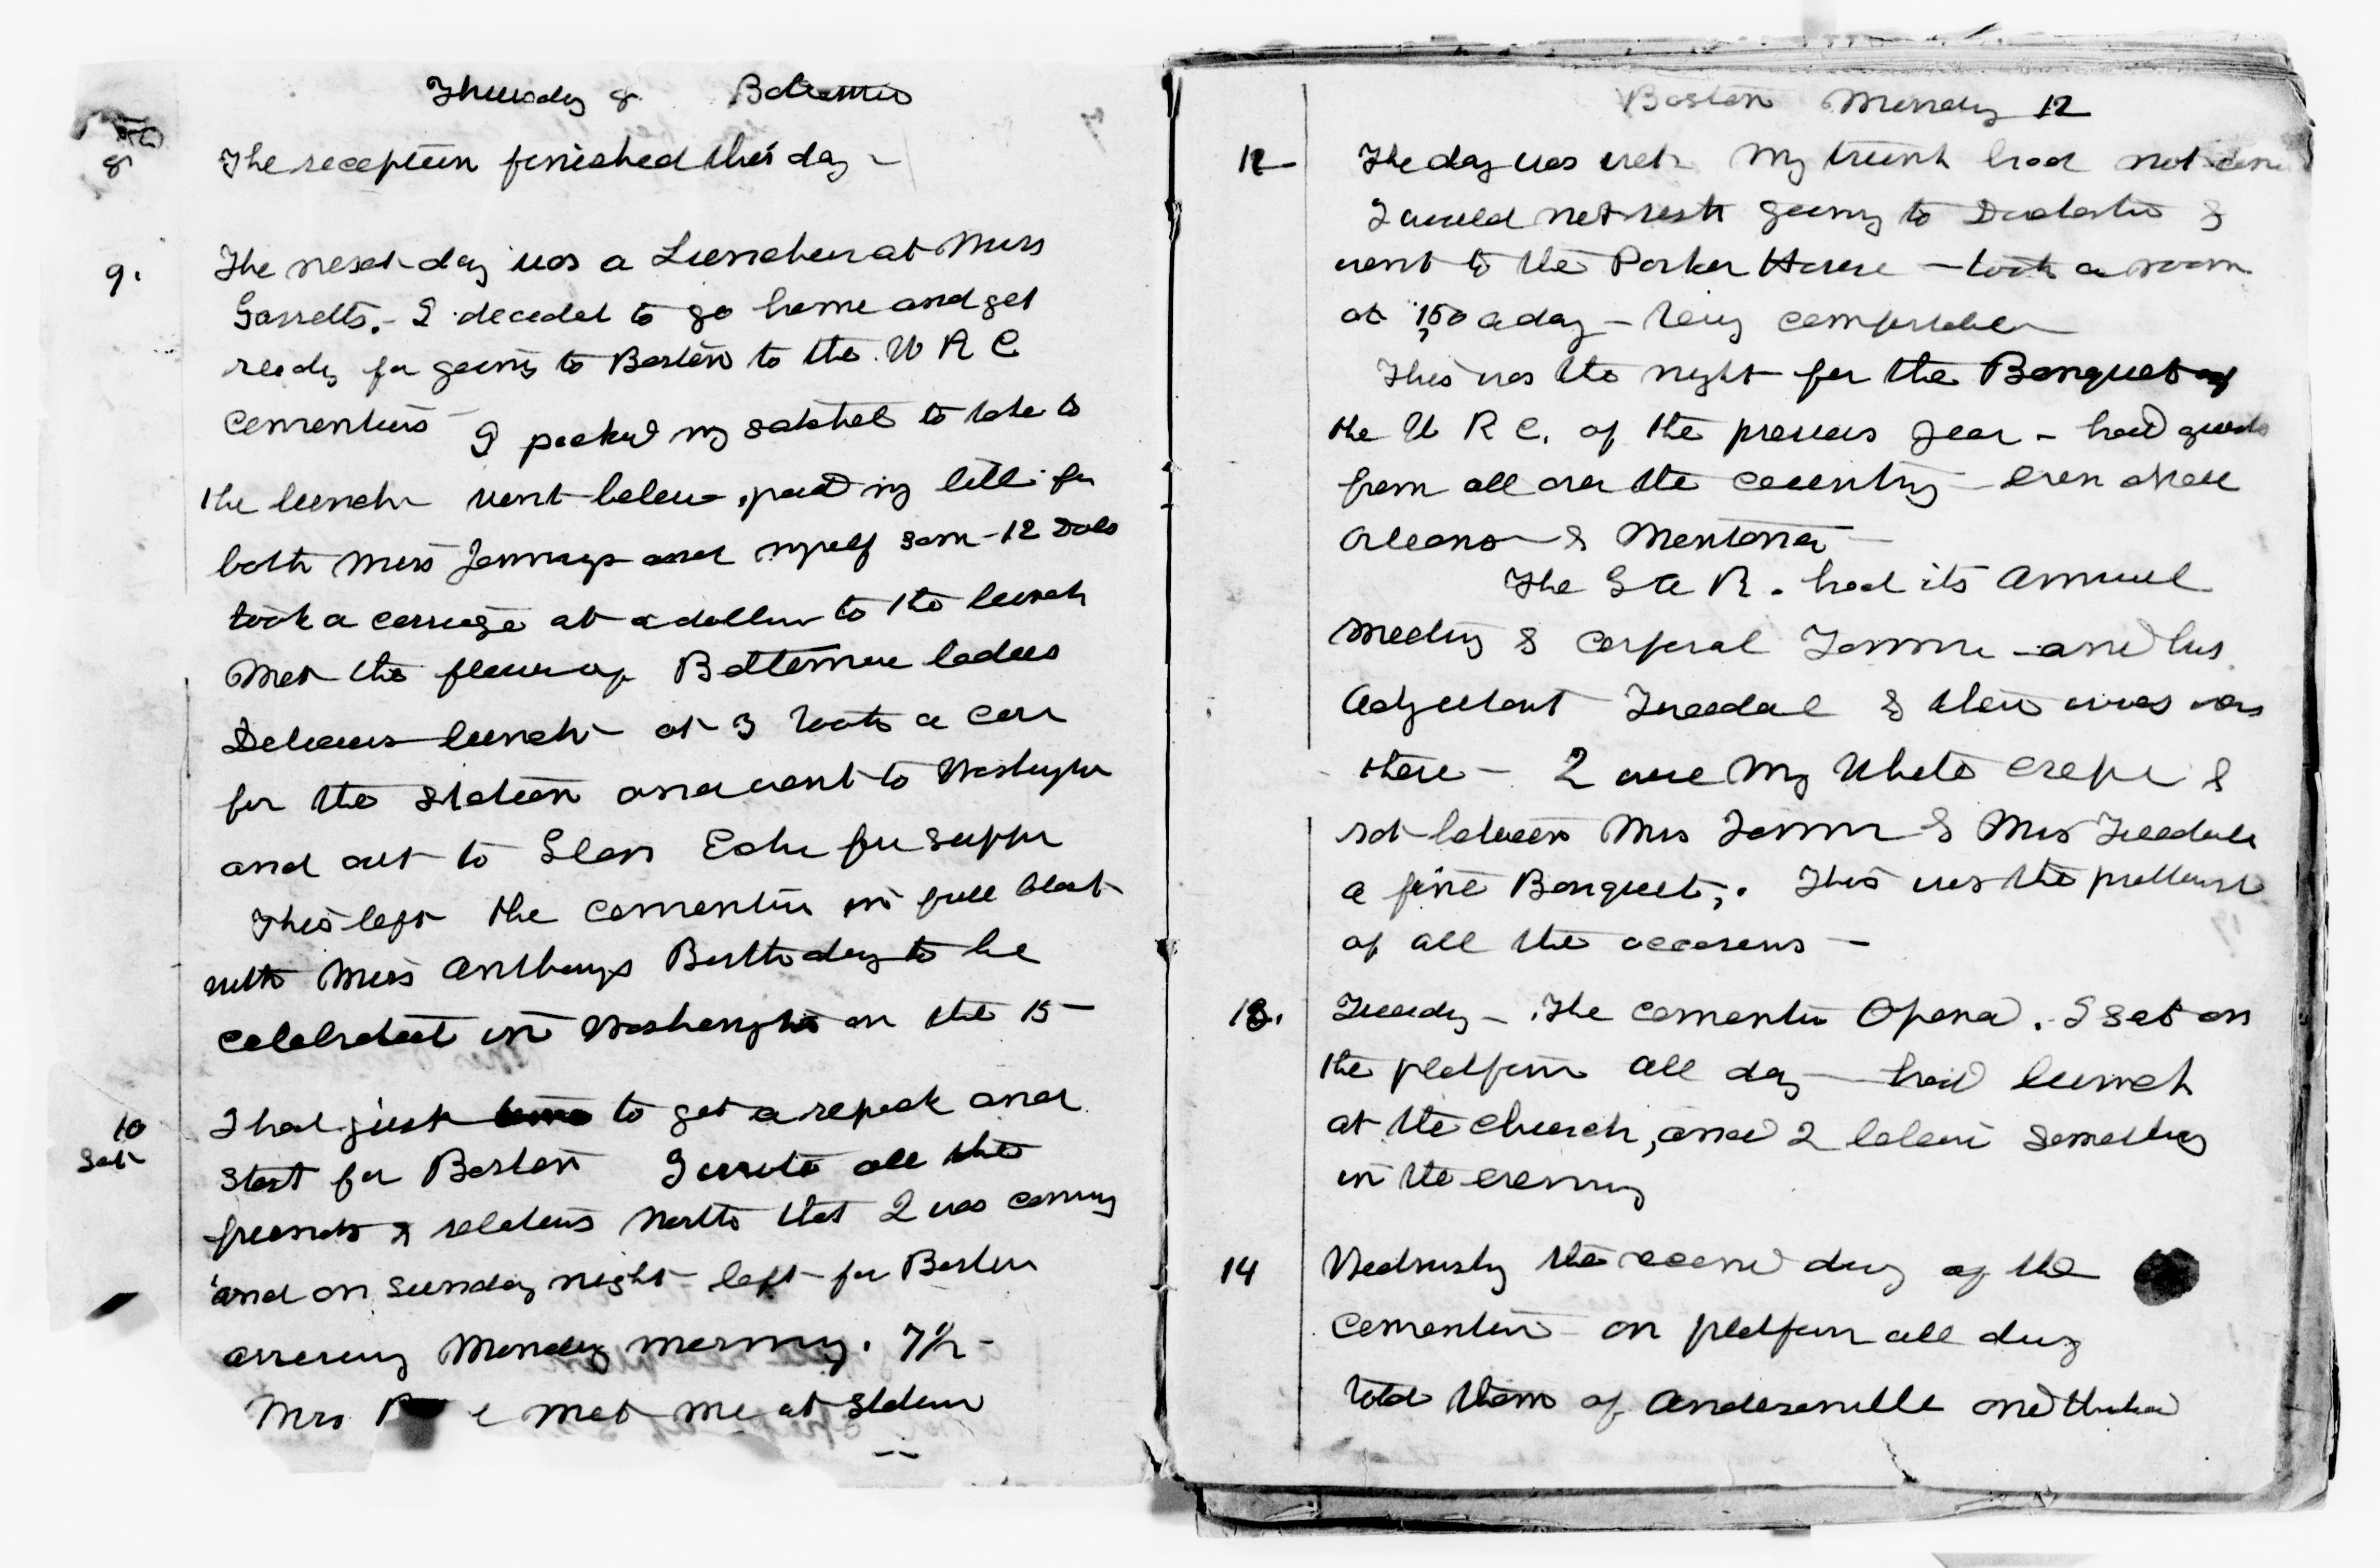 Thursday 8 Baltimore
8 The reception finished this day -
9. The next day was a Luncheon at Miss
Garretts. - I decided to go home and get
ready for going to Boston to the W R C
Convention I packed my satchel to take to
the lunch went below, paid my bill for
both Mrs Jennings and myself som - 12 Dols
took a carriage at a dollar to the lunch
Met the flower of Baltimore ladies
Delicious lunch at 3 took a car
for the station and went to Washington
and out to Glen Echo for supper
This left the convention in full blast
with Miss Anthonys Birthday to be
celebrated in Washington on the 15 -
10 I had just time to get a repack and
Sat start for Boston I wrote all the
friends & relatives North that I was coming
and on Sunday night left for Boston
arriving Monday morning. 7½ -
Mrs met me at station
Boston Monday 12
12 The day was wet My trunk had not come
I would not risk going to &
went to the Parker House - took a room
at 150 a day - very comfortable
This was the night for the Banquet of
the W R C. of the previous year - had guests
from all over the country - even New
Orleans & Montana -
The G A R. had its annual
meeting & Corporal Tanner and his
Adjutant Tweedale & their wives was
there - I wore my White crepe &
sat between Mrs Tanner & Mrs Tweedale
a fine Banquet,. This was the prettiest
of all the occasions -
13. Tuesday - The convention Opened. I sat on
the platform all day - had lunch
at the church, and I believe something
in the evening
14 Wednesday the second day of the
convention - on platform all day
told them of Andersonville and